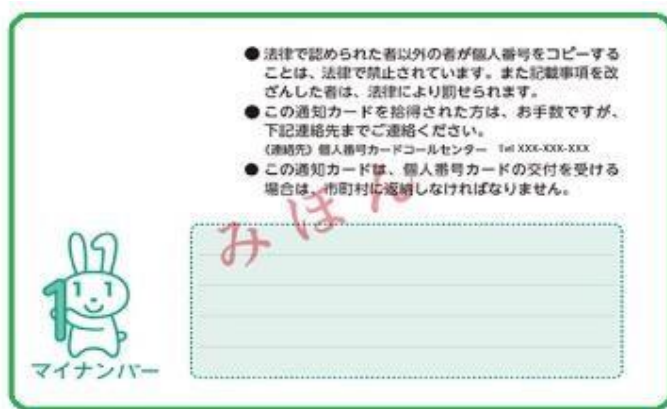 ● 法律で認められた者以外の者が個人番号をコピーする
ことは、法律で禁止されています。また記載事項を改
ざんした者は、法律により罰せられます。
● この通知カードを拾得された方は、お手数ですが、
下記連絡先までご連絡ください。
《連絡先》個人番号カードコールセンター Tel XXX-XXX-XXX
● この通知カードは、個人番号カードの交付を受ける
場合は、市町村に返納しなければなりません。
みほん
1
マイナンバー